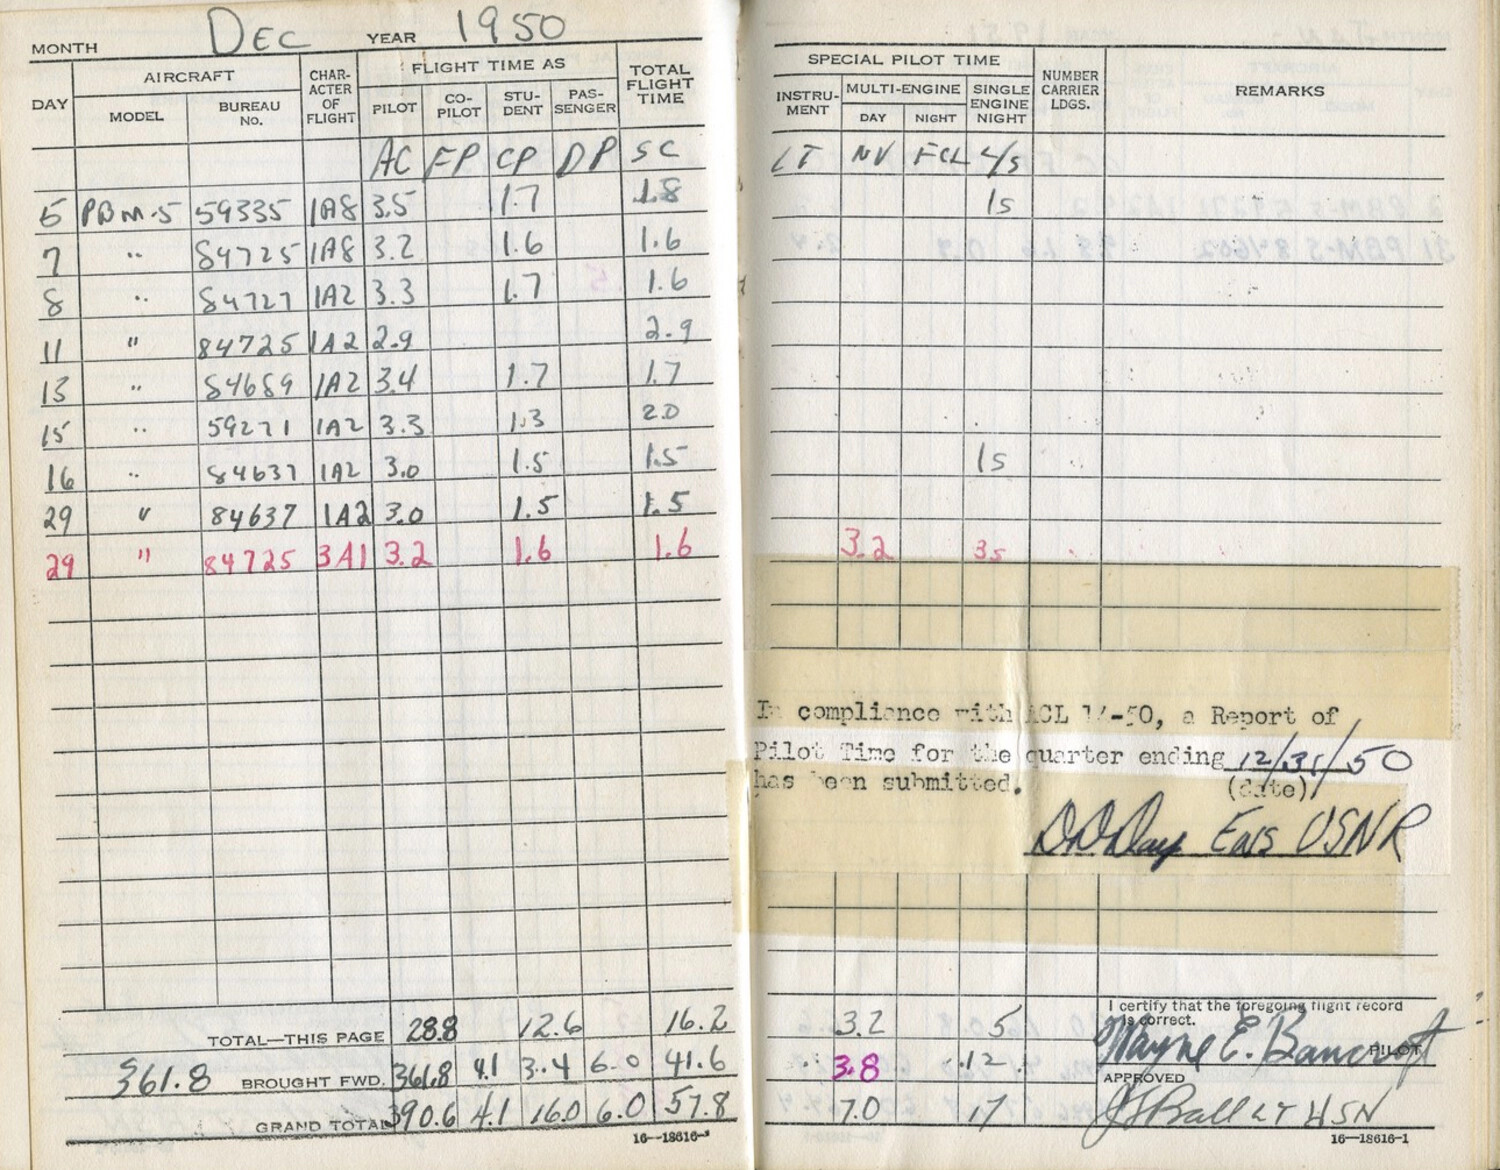 MONTH DEC YEAR 1950
DAY AIRCRAFT CHARACTER OF FLIGHT FLIGHT TIME AS TOTAL FLIGHT TIME
MODEL BUREAU No. PILOT CO-PILOT STU-DENT PAS-SENGER
AC FP CP DP SC
5 PBM-5 59335 1A8 3.5 1.7 1.8
7 " 84725 1A8 3.2 1.6 1.6
8 " 84727 1A2 3.3 1.7 1.6
11 " 84725 1A2 2.9 2.9
13 " 84689 1A2 3.4 1.7 1.7
15 " 59271 1A2 3.3 1.3 2.0
16 " 84637 1A2 3.0 1.5 1.5
29 " 84637 1A2 3.0 1.5 1.5
29 " 84725 3A1 3.2 1.6 1.6
TOTAL—THIS PAGE 28.8 12.6 16.2
361.8 BROUGHT FWD. 361.8 4.1 3.4 6.0 41.6
GRAND TOTAL 390.6 4.1 16.0 6.0 57.8
16—18616-1
SPECIAL PILOT TIME NUMBER CARRIER LDGS. REMARKS
INSTRU-MENT MULTI-ENGINE SINGLE ENGINE NIGHT
DAY NIGHT
LT NV FCL L/S
1s
1s
3.2 3s
In compliance with ACL 14-50, a Report of
Pilot Time for the quarter ending 12/31/50
has been submitted. (date)
D D Day Ens USNR
I certify that the foregoing flight record
is correct.
3.2 5 Wayne E. Bancroft PILOT
3.8 12 APPROVED
7.0 17 J S Ball LT USN
16—18616-1